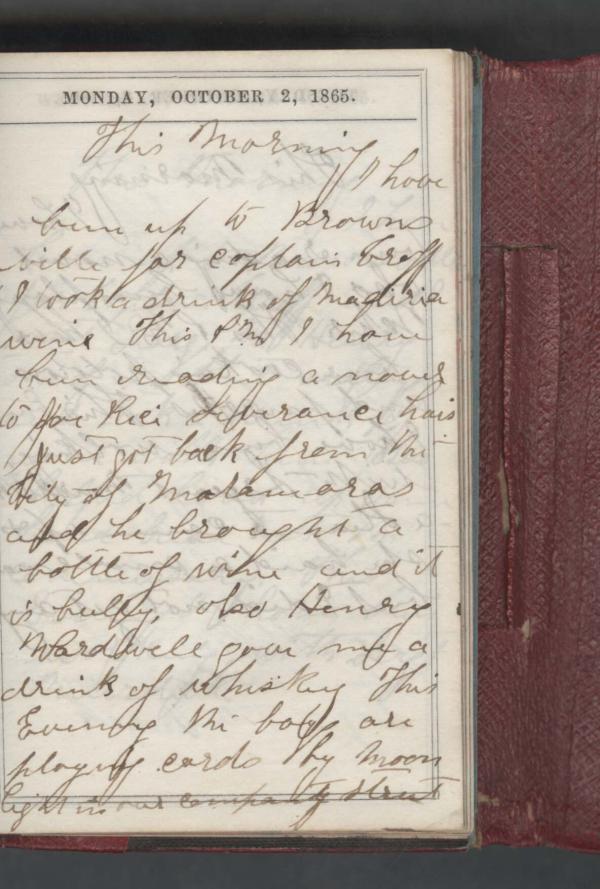 MONDAY, OCTOBER 2, 1865.
This Morning
I have
been up to Browns
ville for captain Graff
I took a drink of Madiria
wine This P.M I have
been reading a novel
to Joe Rice Severance hais
just got back from the
City of Matamoras
and he brought a
bottle of wine and it
is bully, also Henry
Wardwell gave me a
drink of whiskey This
Evening the boys are
playing cards by moon
light in our company street